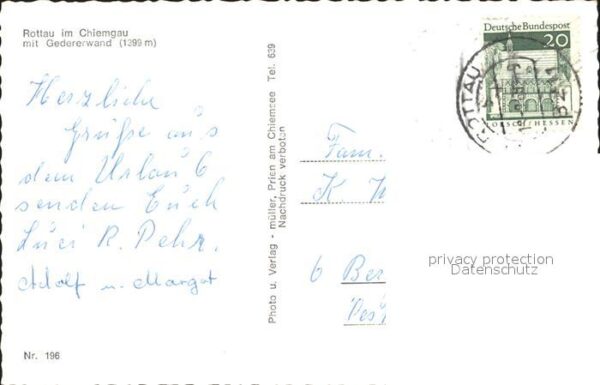 Rottau im Chiemgau
mit Gedererwand (1399 m)
Herzliche
Grüße aus
dem Urlaub
senden Euch
Adolf u. Margot
Nr. 196
Photo u. Verlag - müller, Prien am Chiemsee Tel. 639
Nachdruck verboten
Deutsche Bundespost
20
LORSCH/HESSEN
ROTTAU
Fam.
K. W
6 Ber
privacy protection
Datenschutz